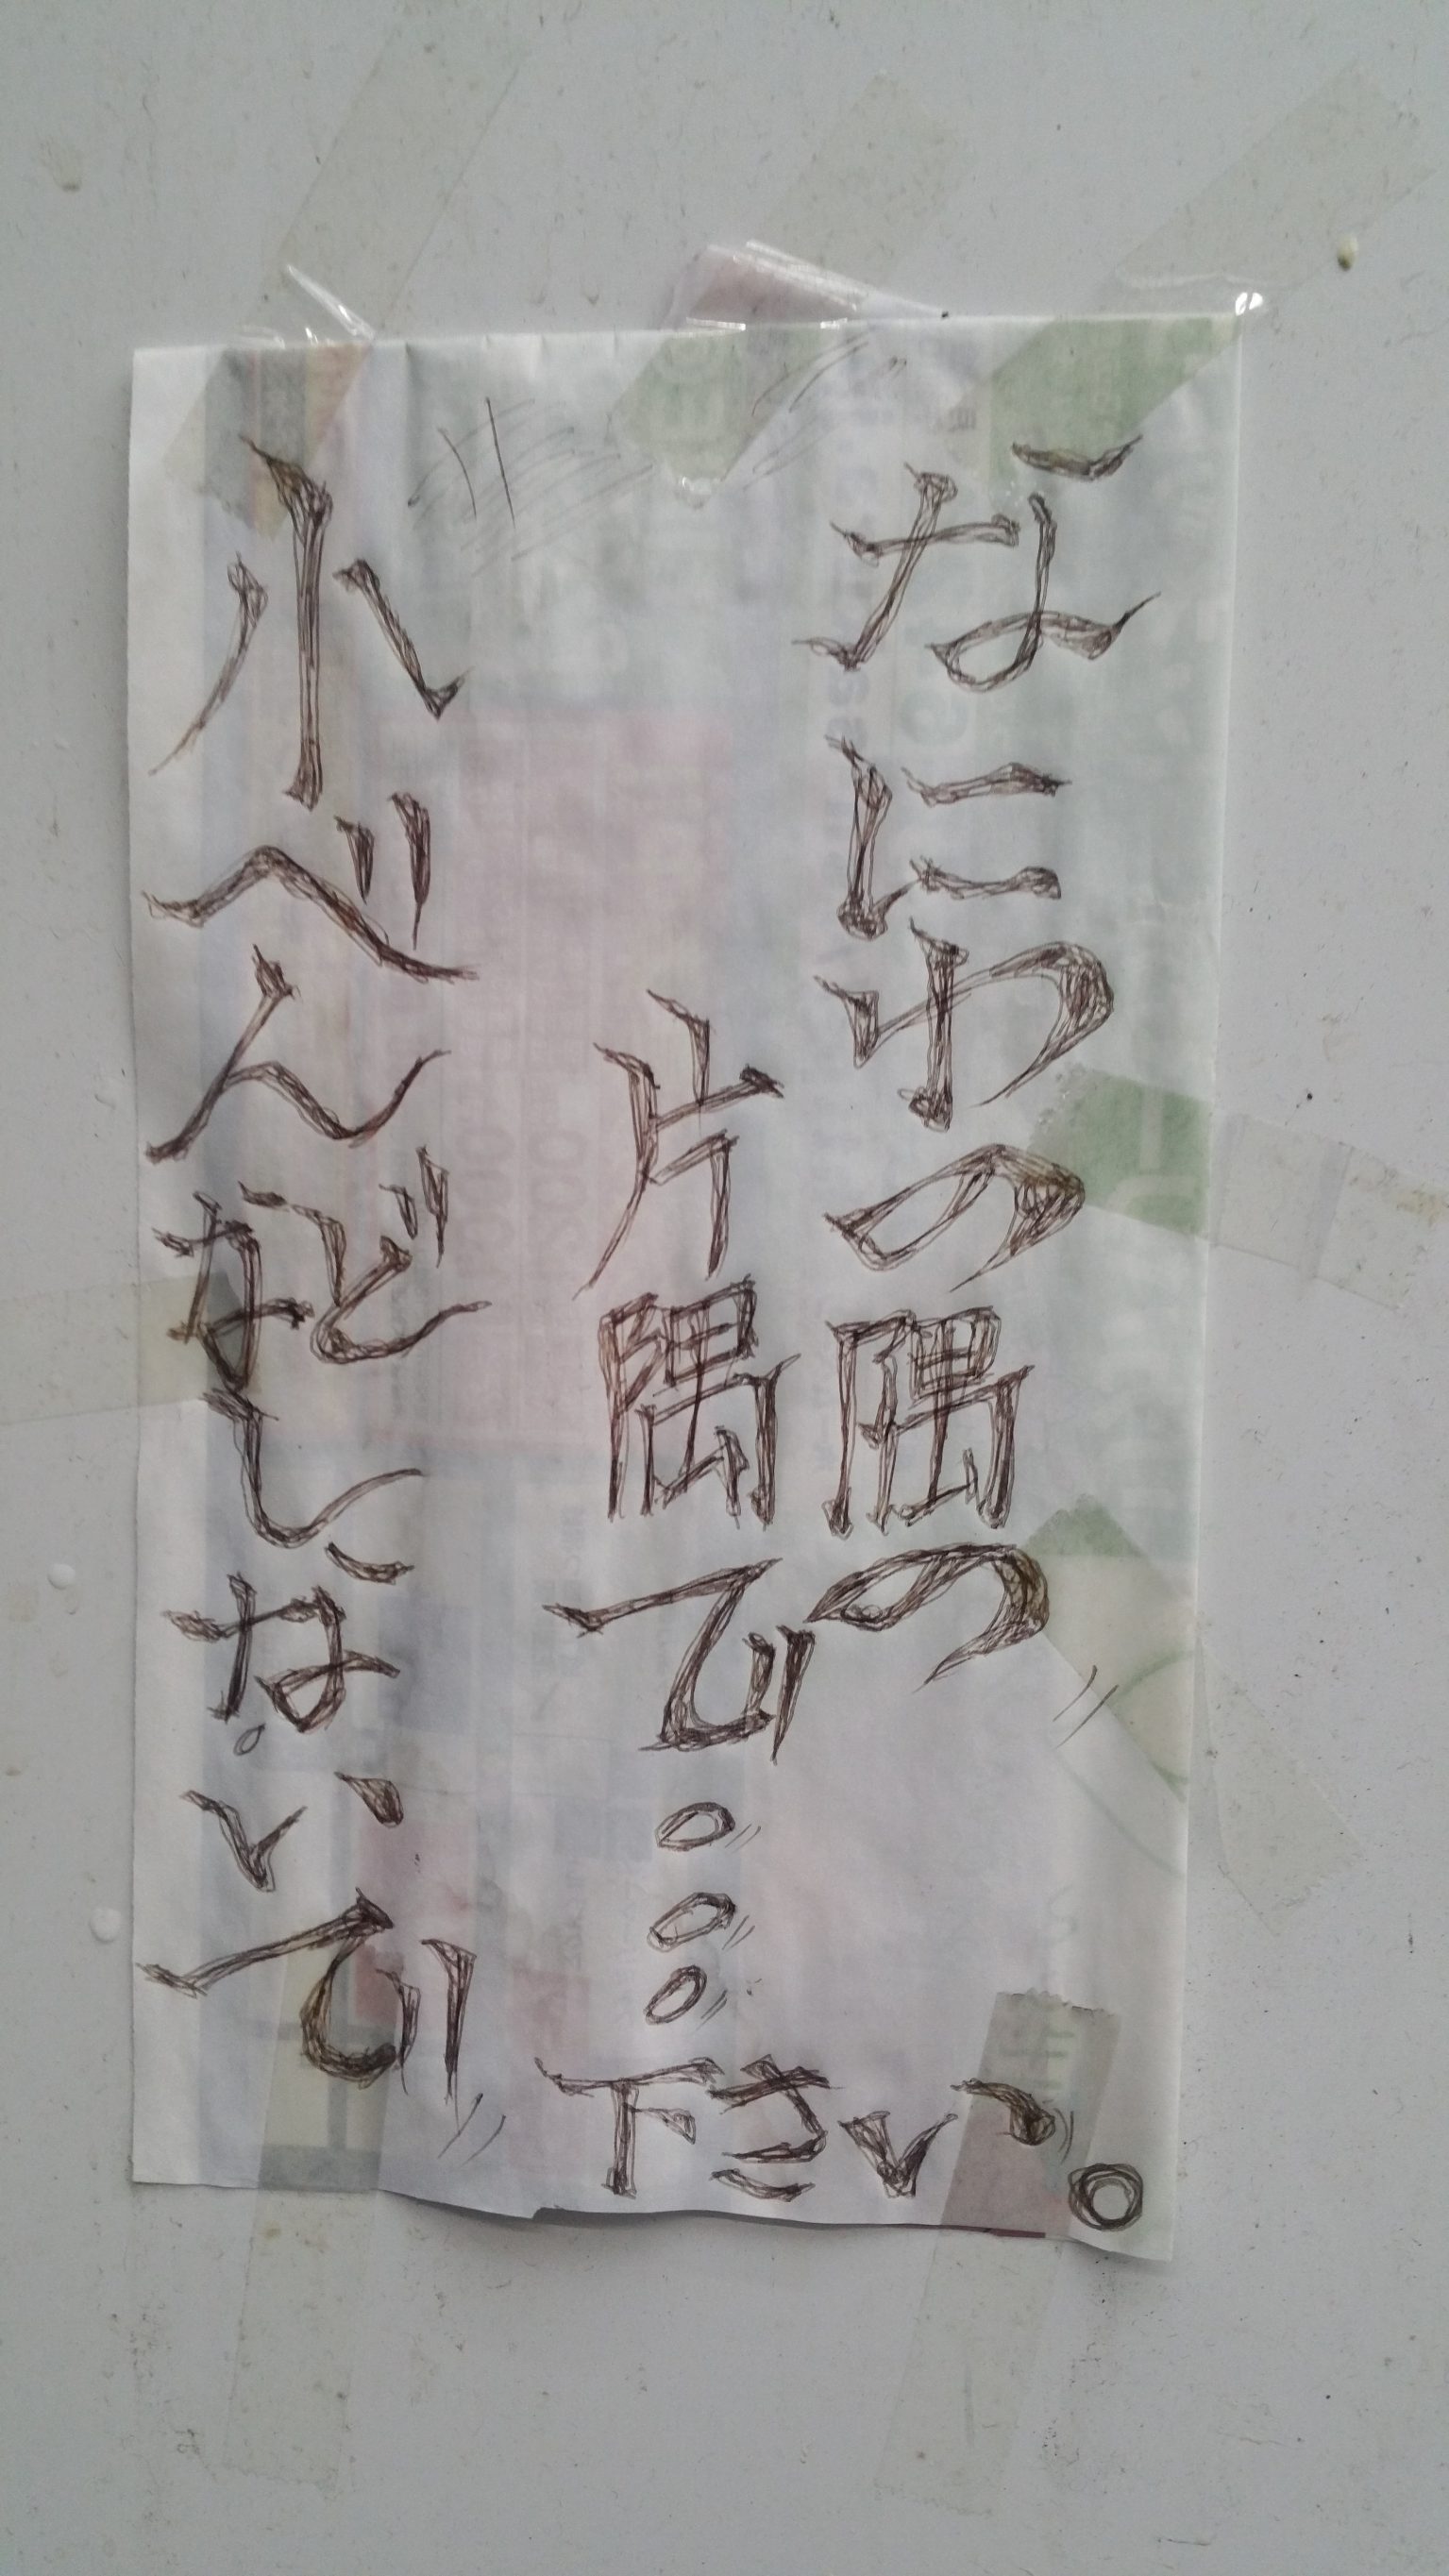 なにわの隅の
片隅で。。。
小べんなどしないで
下さい。